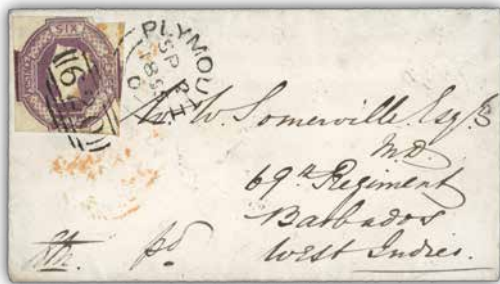 SIX
PLYMOUTH
SP
W. Somerville Esqr
M.D.
69th Regiment
Barbados
West Indies.
pd